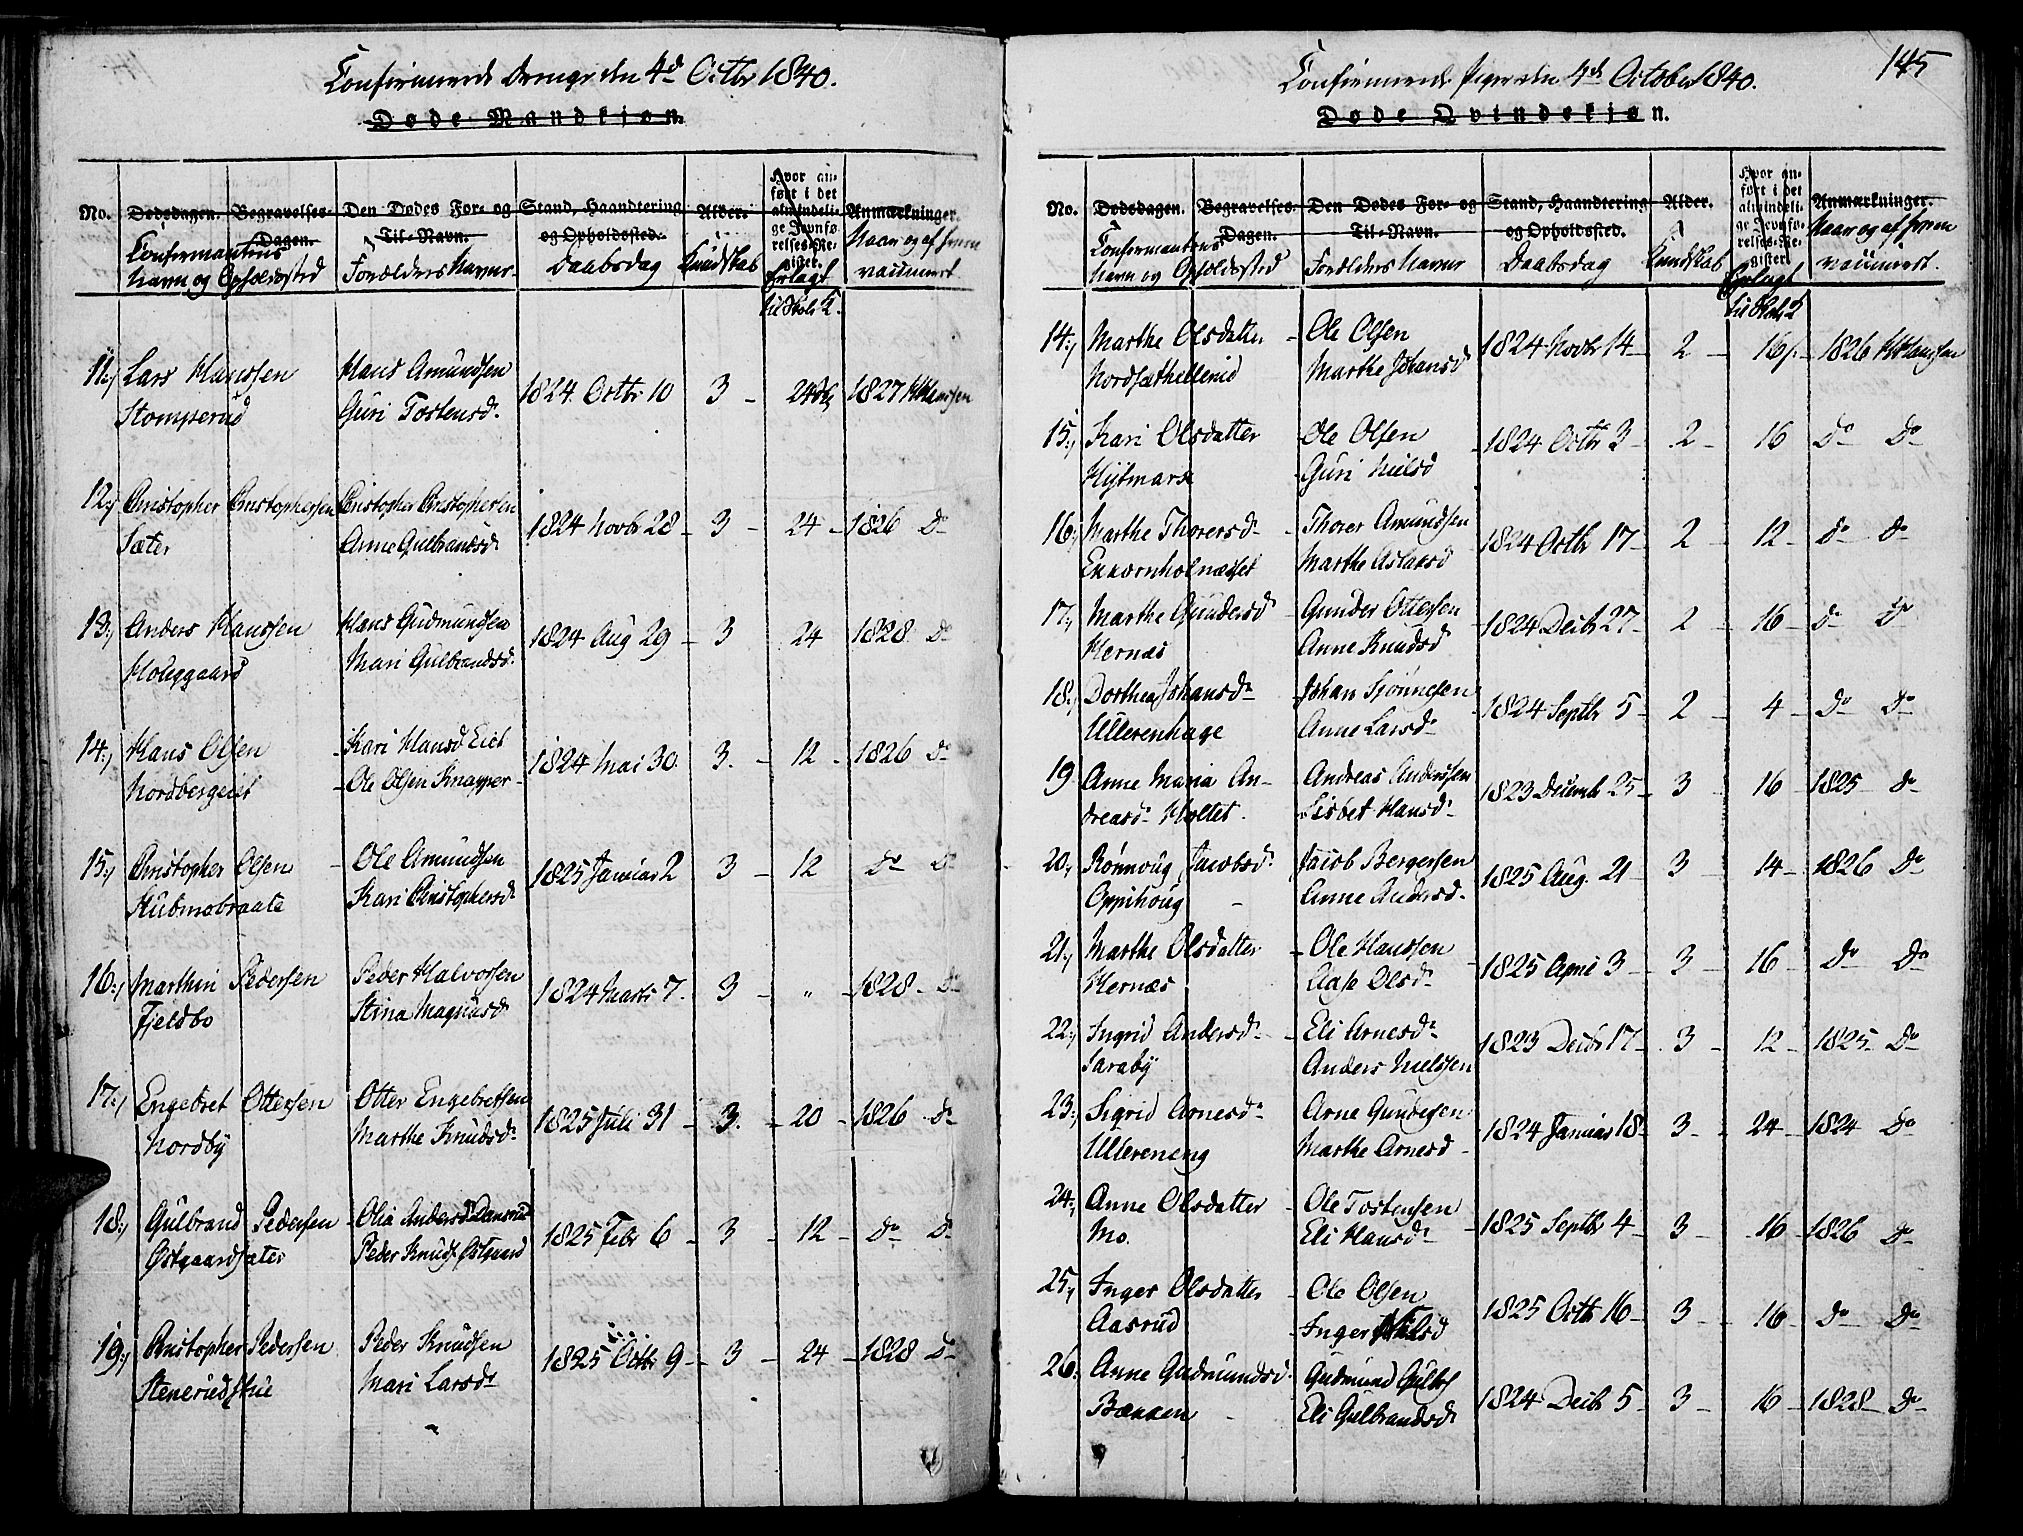 Confirmerede Drenge den 4de Octbr 1840.
Døde Mandkjøn.
No. Dødsdagen. Begravelses-Dagen. Den Dødes For- og Til-Navn. Stand, Haandtering og Opholdssted. Alder. Hvor anført i det almindelige Jevnførelses-Register. Anmærkninger.
Confirmantens Navn og Opholdsted Forældres Navne Daabsdag Kundskab Erlagt til Skolek. Naar og af hvem vaccineret
11, Lars Hanssen Hans Amundsen
Stomperud Guri Tostensd. 1824. Octbr 10 3 - 24 1827 H Hanssen
12, Christopher Christophersen Christopher Christophersen
Sæter Anne Gulbrandsd 1824 Novbr 28 - 3 - 24 - 1826 Do
13, Anders Hanssen Hans Gudmundsen
Holeggaard Mari Gulbrandsd. 1824 Aug 29 - 3 24 1828 Do
14, Hans Olsen - Kari Hansd Eiet
Nordbergeiet - Ole Olsen Knapper - 1824 Mai 30. 3. - 12 - 1826 Do
15, Christopher Olsen - Ole Amundsen
Stubmobraata Kari Christophersd 1825 Januar 2 3 - 12 Do Do
16, Marthin Pedersen Peder Halvorsen
Fjeldbo Stina Magnusd 1824 Marts 7. 3 - „ - 1828 - Do
17, Engebret Ottersen Otter Engebretsen
Nordby Marthe Knudsd. 1825 Juli 31 - 3. - 20 - 1826 Do
18, Gulbrand Pedersen - Olia Andersd Dansrud
Østgaardsæter Peder Knuds. Østgaard 1825 Febr 6 - 3 - 12 - Do - Do
19, Christopher Pedersen Peder Knudsen
Steneriedstue Mari Larsd 1825 Octbr 9 - 3 - 24 - 1828 Do
145
Confirmerede Piger den 4de October 1840.
Døde Qvindekjøn.
No. Dødsdagen. Begravelses-Dagen. Den Dødes For- og Til-Navn. Stand, Haandtering og Opholdssted. Alder. Hvor anført i det almindelige Jevnførelses-Register. Anmærkninger.
Confirmantens Navn og Opholdsted Forældres Navne Daabsdag Kundskab Erlagt til Skolek. Naar og af hvem vaccineret.
14, Marthe Olsdatter - Ole Olsen
Nordsæthellerud Marthe Johansd 1824 Novbr 14 - 2 - 16 - 1826 H Hanssen
15, Kari Olsdatter - Ole Olsen
Hytmarsk - Guri Nielsd 1824 Octbr 3 - 2 - 16 Do Do
16, Marthe Thorersd - Thorer Amundsen
Ekkornholnæsset Marthe Aslaksd 1824 Octbr 17 - 2 - 12 - Do Do
17, Marthe Gundersd - Gunder Ottersen
Hernæs Anne Knudsd 1824 Decbr 27 - 2 - 16 - Do Do
18, Dorthea Johansd - Johan Tjønnesen
Ullerenhage Anne Larsd 1824 Septbr 5 - 2 - 4 - Do - Do
19 Anne Maria An- - Andreas Anderssen
dreasd Holtet. Lisbet Hansd. 1823 Decemb 25 - 3 - 16 - 1825 Do
20, Rønnoug Jacobsd. Jacob Bergersen
Oppihoug - Anne Andersd. 1825 Aug. 21 - 3 - 14 - 1826 Do
21, Marthe Olsdatter - Ole Hanssen
Hernæs Aase Olsd 1825 April 3 - 3 - 16 - Do Do
22, Ingrid Andersd - Eli Arnesd
Saraby Anders Nielssen 1823 Decbr 17 - 3 - 12 - 1825 - Do
23, Sigrid Arnesd. Arne Gundesen
Ullereneng Marthe Arnesd - 1824 Januar 18 - 3 - 24 - 1824 Do
24, Anne Olsdatter - Ole Tostensen
Mo. Eli Hansd 1825 Septbr 4 - 3 - 16 - 1826 Do
25, Inger Olsdatter - Ole Olsen
Aasrud - Inger Nilsd 1825 Octbr 16 - 3 - 16 - Do - Do
26. Anne Gudmundsd. Gudmund Gulbs
Bækken - Eli Gulbrandsd 1824 Decbr 5 - 3 - 16 - 1828 - Do